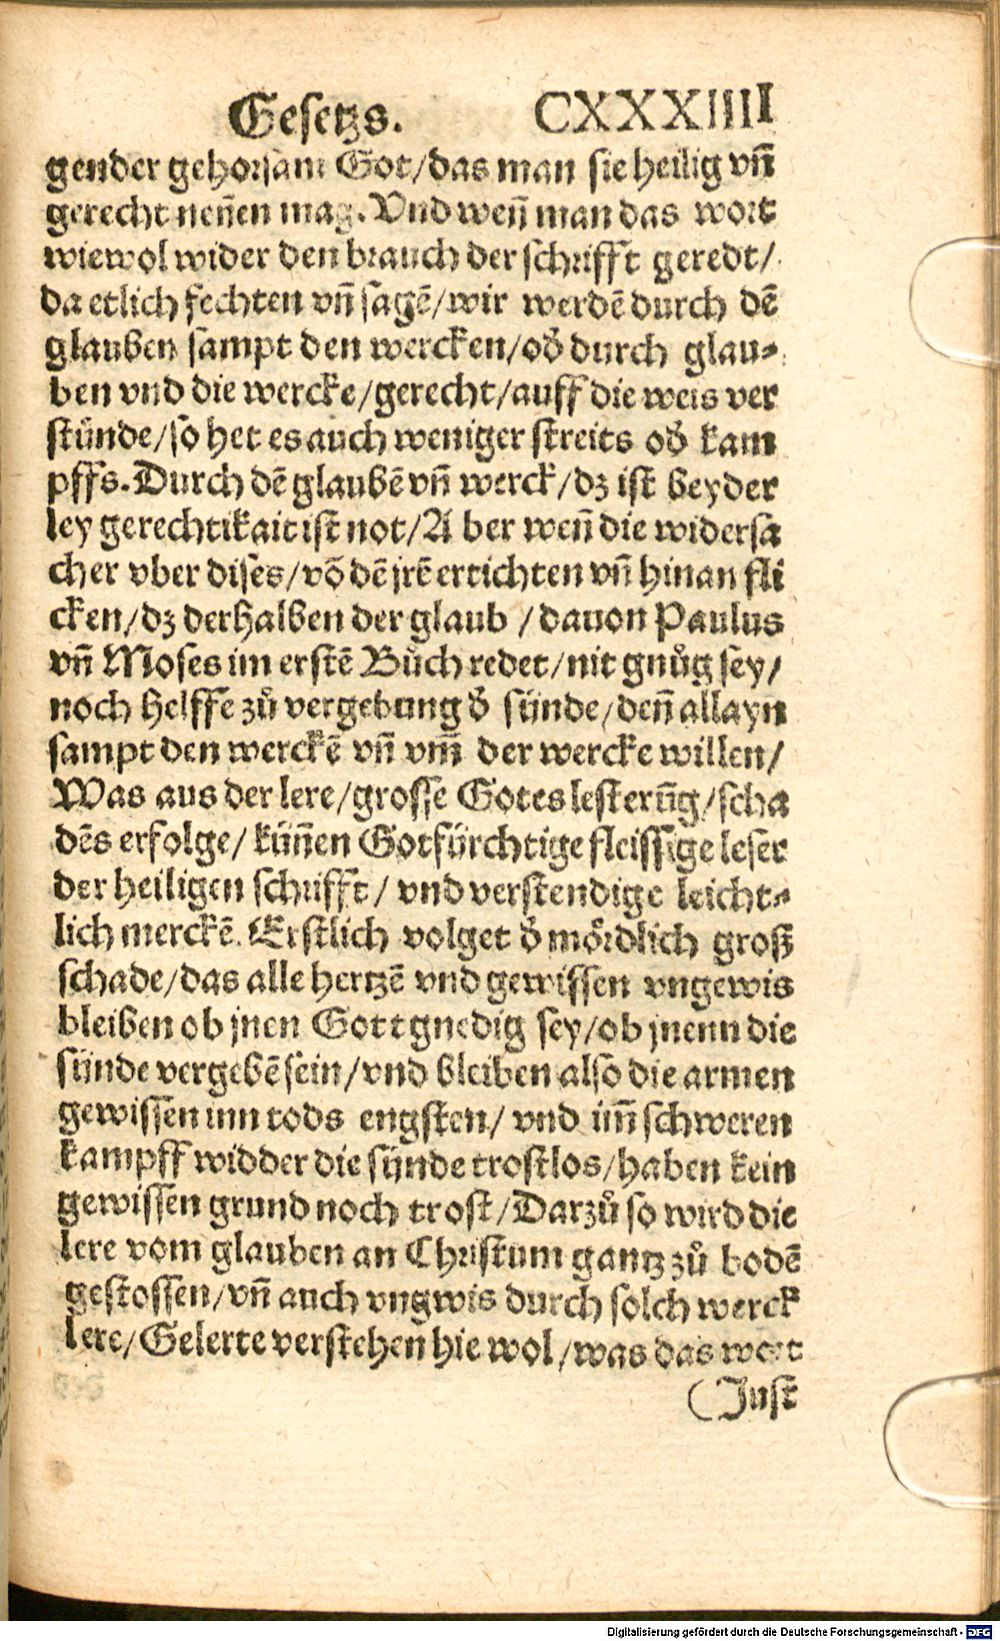 Gesetzs. CXXXIIII
gender gehorsam Got/das man sie heilig vñ
gerecht neñen mag. Vnd weñ man das wort
wiewol wider den brauch der schrifft geredt/
da etlich fechten vñ sagē/wir werdē durch dē
glauben sampt den wercken/oð durch glau⸗
ben vnd die wercke/gerecht/auff die weis ver
stünde/so het es auch weniger streits oð kam
pffs. Durch dē glaubē vñ werck/dz ist beyder
ley gerechtikait ist not/A ber weñ die widersa
cher vber dises/võ dē jrē ertichten vñ hinan fli
cken/dz derhalben der glaub /dauon Paulus
vñ Moses im erstē Bůch redet/nit gnůg sey/
noch helffe zů vergebung ð sünde/deñ allayn
sampt den werckē vñ vm̄ der wercke willen/
Was aus der lere/grosse Gotes lesterūg/scha
dēs erfolge/ küñen Gotfürchtige fleissige leser
der heiligen schrifft/ vnd verstendige leicht⸗
lich merckē. Erstlich volget ð mördlich groß
schade/das alle hertzē vnd gewissen vngewis
bleiben ob jnen Gott gnedig sey/ob jnenn die
sünde vergebē sein/vnd bleiben also die armen
gewissen inn tods engsten/ vnd im̄ schweren
kampff widder die sünde trostlos/haben kein
gewissen grund noch trost/Darzů so wird die
lere vom glauben an Christum gantz zů bodē
gestossen/vñ auch vngwis durch solch werck
lere/Gelerte verstehen hie wol/was das wort
(Just
Digitalisierung gefördert durch die Deutsche Forschungsgemeinschaft - DFG